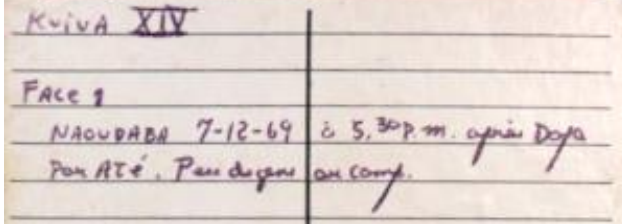 KuivA XIV
FAce 1
NAOUDABA 7-12-69 à 5.30 p.m. après Dopa
Par Até. Peu de gens au camp.